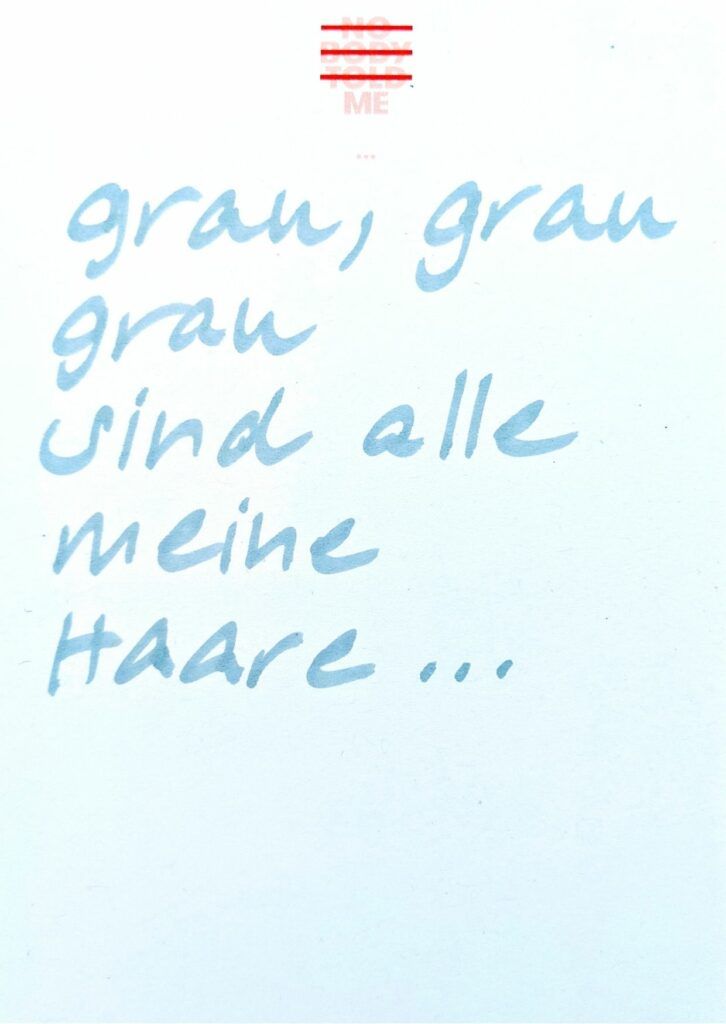 NO
BODY
TOLD
ME
...
grau, grau
grau
sind alle
meine
Haare...